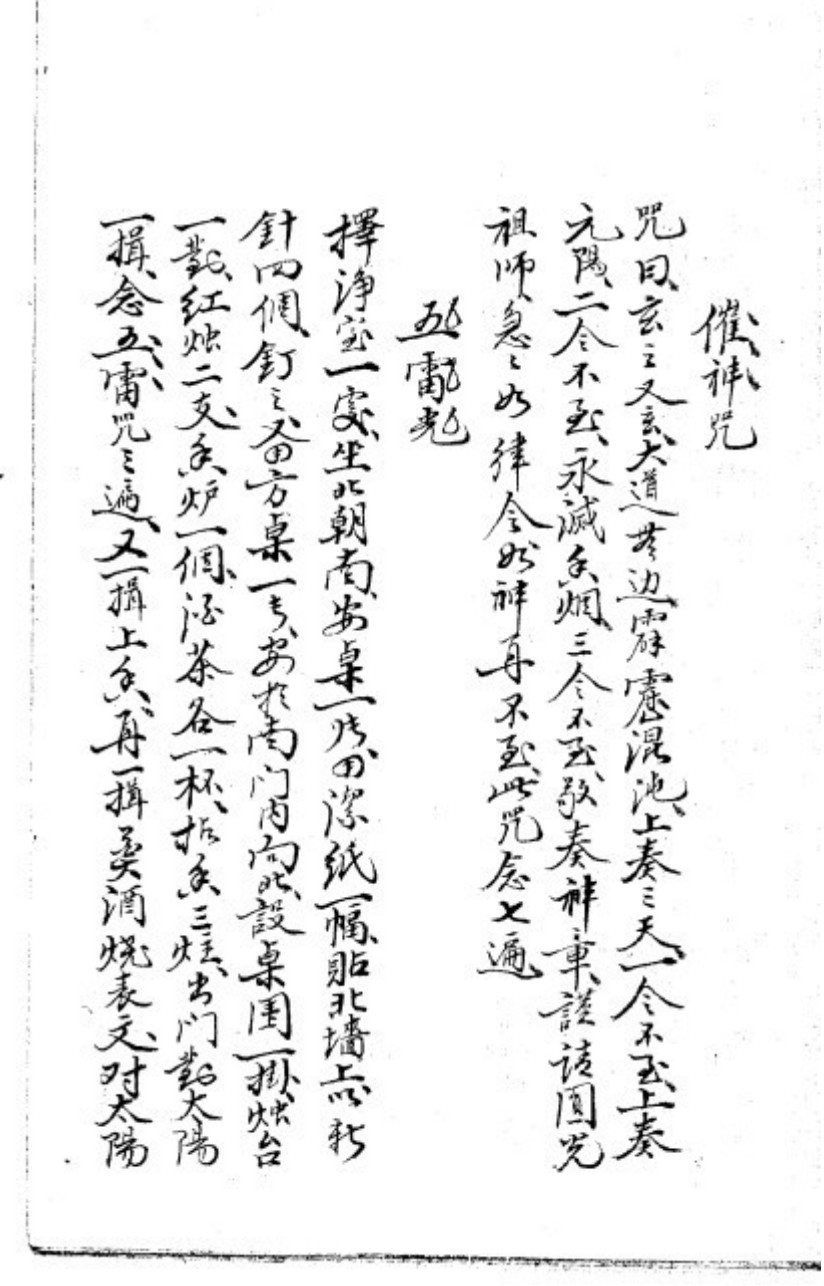 催神咒
咒曰、玄々又玄、大道無边、霹靂混沌、上奏三天、一令不至、上奏
元陽、二令不至、永滅香烟、三令不至、敬奏神章、謹請圓光
祖師、急々如律令、如神再不至、此咒念七遍、
五雷光
擇净室一處、坐北朝南、安桌一张、用潔紙一幅、貼北墙上、以新
針四個、釘之、又用方桌一张、安於南门内向北、設桌围一掛、烛台
一對、红烛二支、香炉一個、酒茶各一杯、拈香三炷、出门對太陽
一揖、念五雷咒三遍、又一揖上香、再一揖奠酒烧表文、对太陽